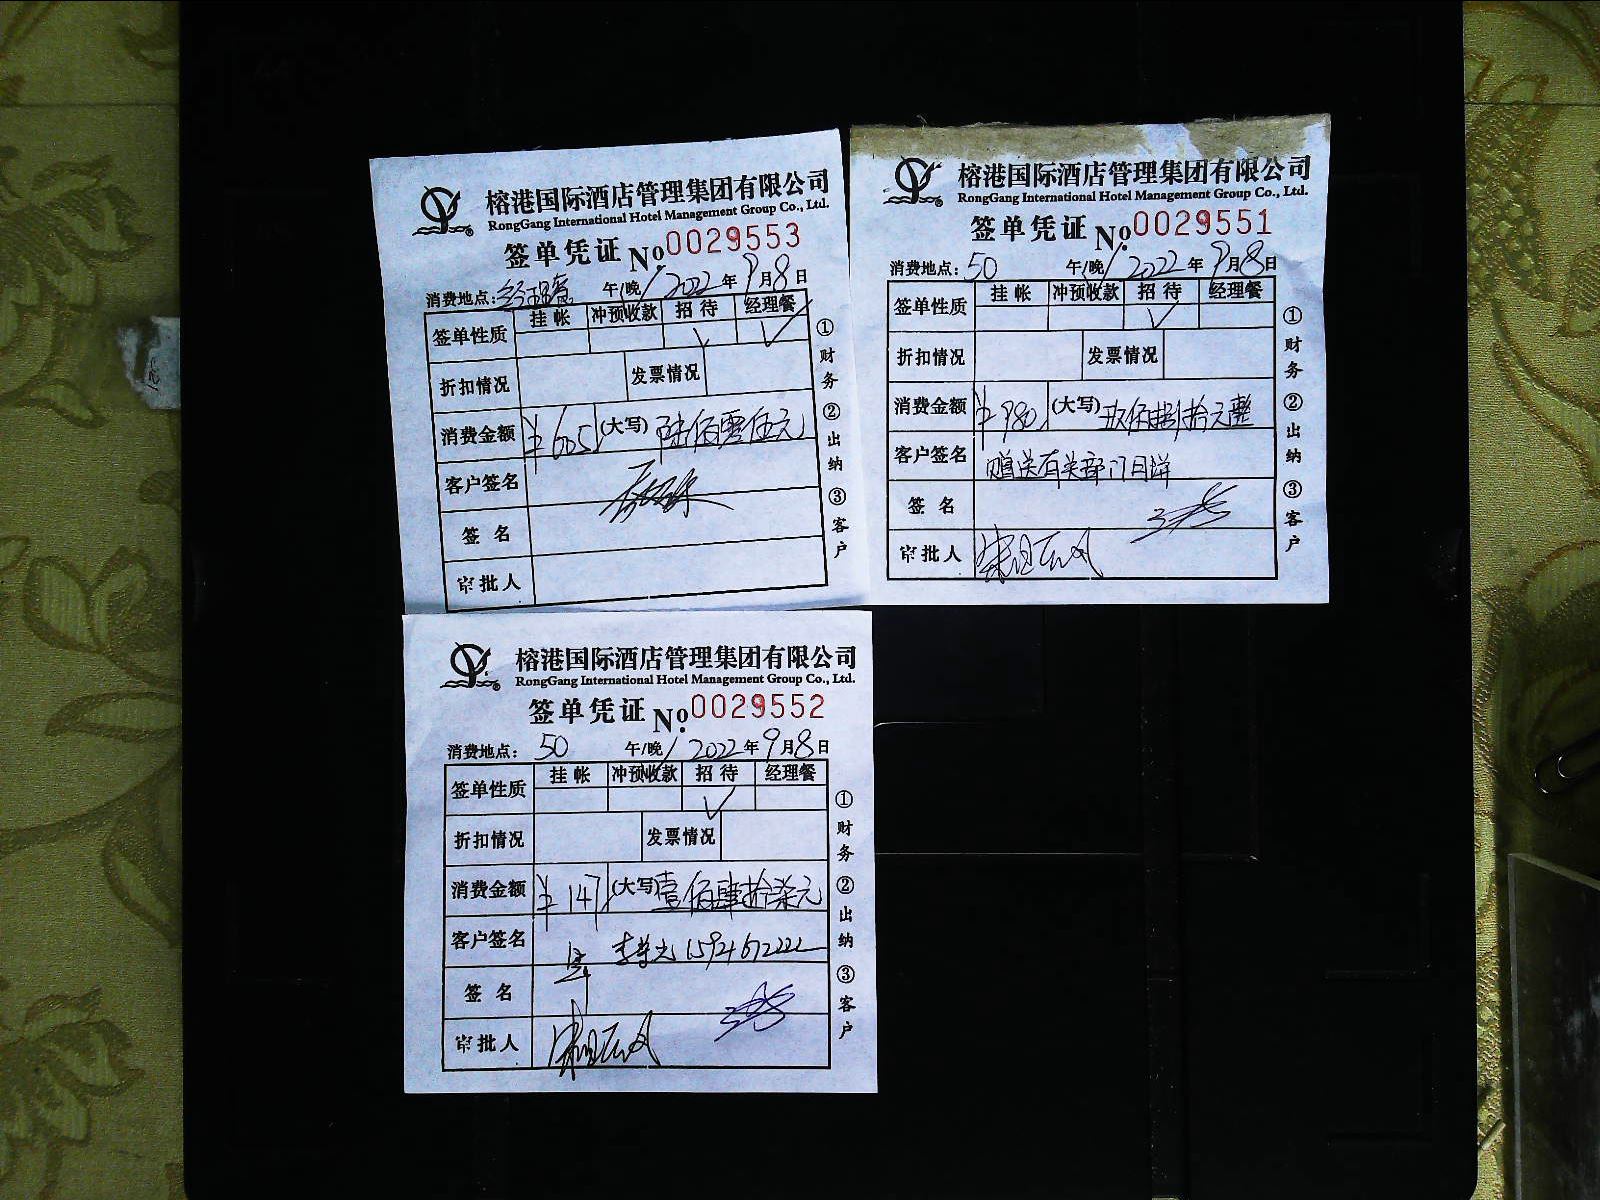 榕港国际酒店管理集团有限公司
RongGang International Hotel Management Group Co., Ltd.
签单凭证 No.0029553
消费地点: 午/晚 2022年9月8日
签单性质 挂帐 冲预收款 招待 经理餐
折扣情况 发票情况
消费金额 ¥605 (大写) 陆佰零伍元
客户签名
签名
审批人
①财务 ②出纳 ③客户
榕港国际酒店管理集团有限公司
RongGang International Hotel Management Group Co., Ltd.
签单凭证 No.0029551
消费地点: 50 午/晚 2022年9月8日
签单性质 挂帐 冲预收款 招待 经理餐
折扣情况 发票情况
消费金额 ¥980 (大写) 玖佰捌拾元整
客户签名 赠送有关部门月饼
签名
审批人
①财务 ②出纳 ③客户
榕港国际酒店管理集团有限公司
RongGang International Hotel Management Group Co., Ltd.
签单凭证 No.0029552
消费地点: 50 午/晚 2022年9月8日
签单性质 挂帐 冲预收款 招待 经理餐
折扣情况 发票情况
消费金额 ¥147 (大写) 壹佰肆拾柒元
客户签名
签名
审批人
①财务 ②出纳 ③客户